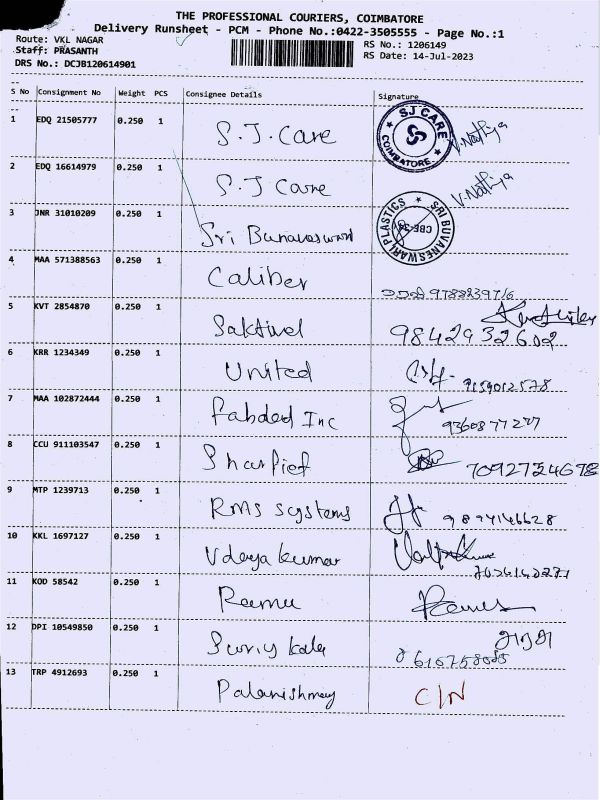 THE PROFESSIONAL COURIERS, COIMBATORE
Delivery Runsheet - PCM - Phone No.:0422-3505555 - Page No.:1
Route: VKL NAGAR
Staff: PRASANTH
DRS No.: DCJB120614901
RS No.: 1206149
RS Date: 14-Jul-2023
S No Consignment No Weight PCS Consignee Details Signature
1 EDQ 21505777 0.250 1 S.J. Care
SJ CARE COIMBATORE
V. Nathiya
2 EDQ 16614979 0.250 1 S.J Care
V. Nathiya
3 JNR 31010209 0.250 1 Sri
SRI BUVANESWARI PLASTICS
4 MAA 571388563 0.250 1 Caliber
5 KVT 2854870 0.250 1 Saktivel 9842932602
6 KRR 1234349 0.250 1 United 9159012578
7 MAA 102872444 0.250 1 Inc
8 CCU 911103547 0.250 1
9 MTP 1239713 0.250 1 RMS Systems
10 KKL 1697127 0.250 1 Udaya kumar
11 KOD 58542 0.250 1 Ramu
12 DPI 10549850 0.250 1
13 TRP 4912693 0.250 1 C/N